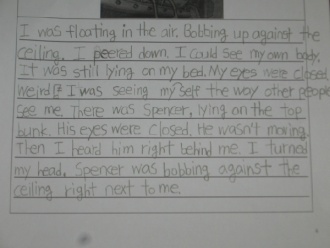 I was floating in the air. Bobbing up against the
ceiling. I peered down. I could see my own body.
It was still lying on my bed. My eyes were closed.
weird I was seeing my self the way other people
see me. There was Spencer, lying on the top
bunk. His eyes were closed. He wasn't moving.
Then I heard him right behind me. I turned
my head, Spencer was bobbing against the
ceiling right next to me.